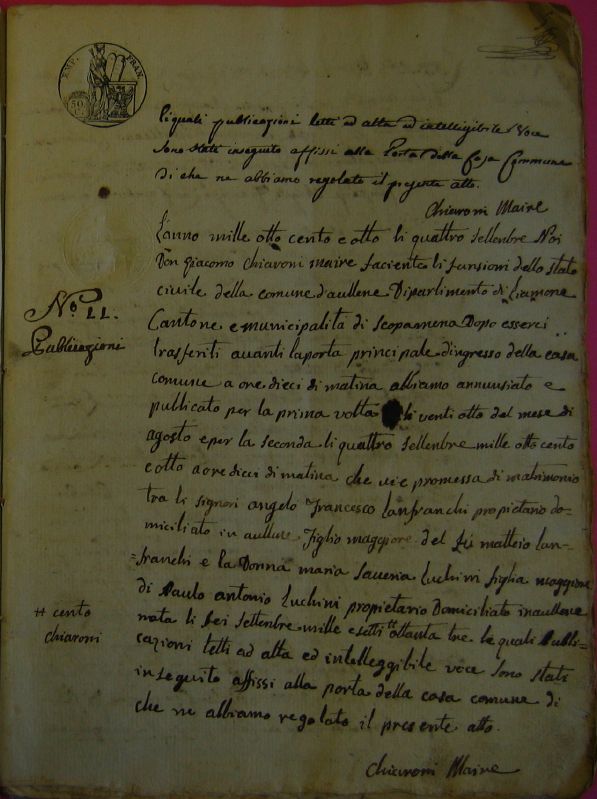 EMP. FRAN.
50 C.
Li quali publicazioni letti ad alta ed intelligibile Voce
sono state inseguito affissi alla Porta della Casa Commune
di che ne abbiamo regolato il presente atto.
Chiaroni Maire
L'anno mille otto cento e otto li quattro settembre Noi
Don Giacomo Chiaroni maire faciente li funsioni dello stato
civile della comune d'aullene Dipartimento di Liamone
Cantone e municipalità di Scopamena Dopo esserci
trasferiti avanti la porta principale d'ingresso della casa
comune a ore dieci di matina abbiamo annunsiato e
publicato per la prima volta li venti otto del mese di
agosto e per la seconda li quattro settembre mille otto cento
e otto a ore dieci di matina che vi e promessa di matrimonio
tra li signori angelo Francesco Lanfranchi propietario do-
miciliato in aullene Figlio maggiore del fù matteio Lan-
=franchi e la Donna maria Saveria Luchini figlia maggiore
di Paulo antonio Luchini propietario Domiciliato in aullene
nata li sei settembre mille e setti # ottanta tre le quali Publi-
cazioni letti ad alta ed intelleggibile voce sono stati
inseguito affissi alla porta della casa comune di
che ne abbiamo regolato il presente atto.
Chiaroni Maire
No. 11.
Publicazioni
# cento
chiaroni